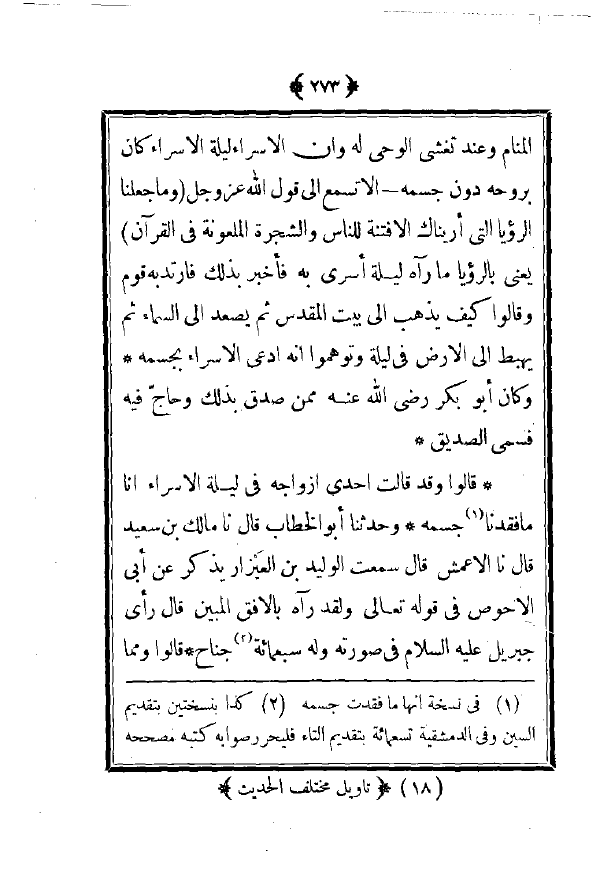 ﴿ ٢٧٣ ﴾
المنام وعند تغشى الوحى له وان الاسراء ليلة الاسراء كان
بروحه دون جسمه – الا تسمع الى قول الله عز وجل (وما جعلنا
الرؤيا التى أريناك الا فتنة للناس والشجرة الملعونة فى القرآن)
يعنى بالرؤيا ما رآه ليلة أسرى به فأخبر بذلك فارتد به قوم
وقالوا كيف يذهب الى بيت المقدس ثم يصعد الى السماء ثم
يهبط الى الارض فى ليلة وتوهموا انه ادعى الاسراء بجسمه *
وكان أبو بكر رضى الله عنه ممن صدق بذلك وحاجّ فيه
فسمى الصديق *
* قالوا وقد قالت احدي ازواجه فى ليلة الاسراء انا
ما فقدنا (١) جسمه * وحدثنا أبو الخطاب قال نا مالك بن سعيد
قال نا الاعمش قال سمعت الوليد بن العيْزار يذكر عن أبى
الاحوص فى قوله تعالى ولقد رآه بالافق المبين قال رأى
جبريل عليه السلام فى صورته وله سبعمائة (٢) جناح * قالوا ومما
(١) فى نسخة انها ما فقدت جسمه (٢) كذا بنسختين بتقديم
السين وفى الدمشقية تسعمائة بتقديم التاء فليحرر صوابه كتبه مصححه
(١٨) ﴿ تاويل مختلف الحديث ﴾